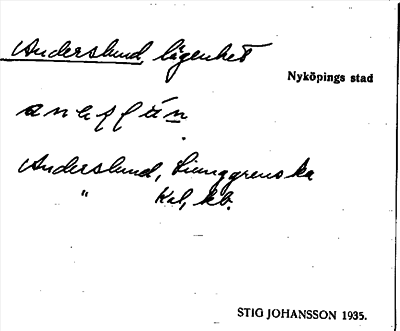 Anderslund, lägenhet
Nyköpings stad
Anderslund, Ljunggrenska
" Kal, kb.
STIG JOHANSSON 1935.